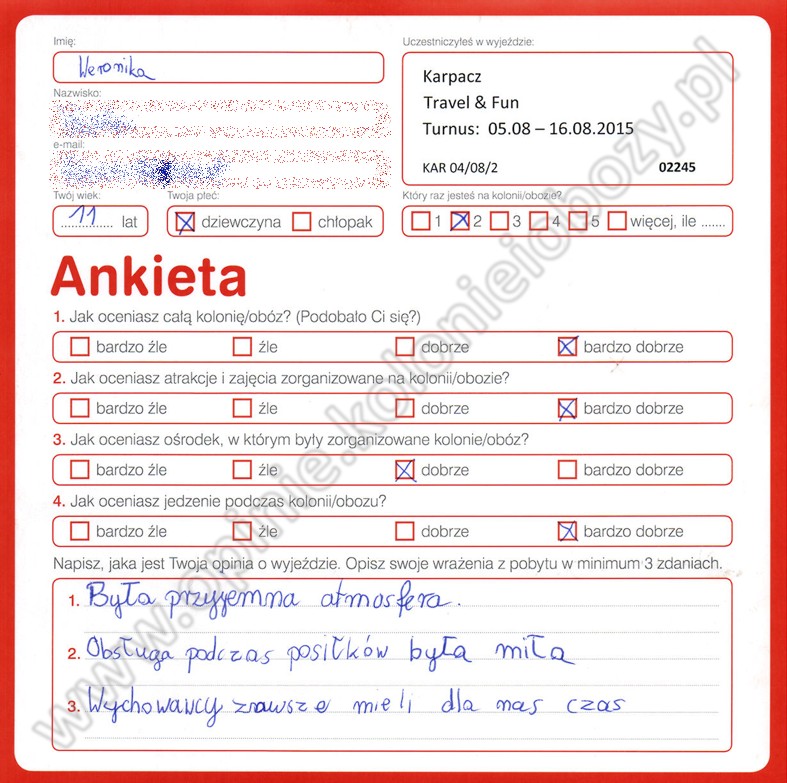 Imię:
Weronika
Nazwisko:
e-mail:
Twój wiek:
11 lat
Twoja płeć:
dziewczyna chłopak
Uczestniczyłeś w wyjeździe:
Karpacz
Travel & Fun
Turnus: 05.08 – 16.08.2015
KAR 04/08/2 02245
Który raz jesteś na kolonii/obozie?
1 2 3 4 5 więcej, ile .......
Ankieta
1. Jak oceniasz całą kolonię/obóz? (Podobało Ci się?)
bardzo źle źle dobrze bardzo dobrze
2. Jak oceniasz atrakcje i zajęcia zorganizowane na kolonii/obozie?
bardzo źle źle dobrze bardzo dobrze
3. Jak oceniasz ośrodek, w którym były zorganizowane kolonie/obóz?
bardzo źle źle dobrze bardzo dobrze
4. Jak oceniasz jedzenie podczas kolonii/obozu?
bardzo źle źle dobrze bardzo dobrze
Napisz, jaka jest Twoja opinia o wyjeździe. Opisz swoje wrażenia z pobytu w minimum 3 zdaniach.
1. Była przyjemna atmosfera.
2. Obsługa podczas posiłków była miła
3. Wychowawcy zawsze mieli dla nas czas
www.opinie.kolonieiobozy.pl